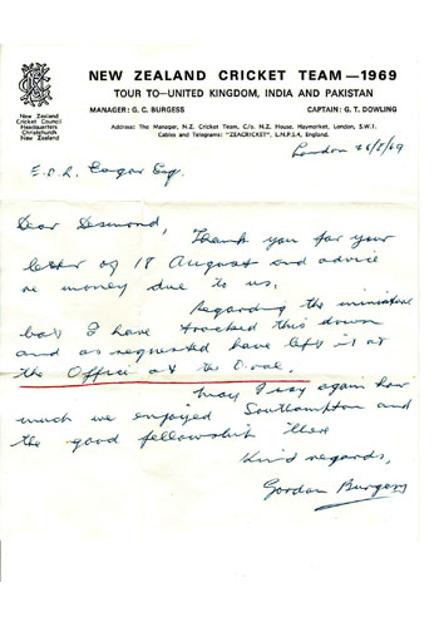 NEW ZEALAND CRICKET TEAM—1969
TOUR TO—UNITED KINGDOM, INDIA AND PAKISTAN
MANAGER: G. C. BURGESS CAPTAIN: G. T. DOWLING
New Zealand
Cricket Council
Headquarters
Christchurch
New Zealand
Address: The Manager, N.Z. Cricket Team, C/o. N.Z. House, Haymarket, London, S.W.1.
Cables and Telegrams: "ZEACRICKET", L.N.P.S.4, England.
London 26/8/69
Esq.
Dear Desmond,
Thank you for your
letter of 18 August and advice
re money due to us.
Regarding the miniature
bat I have tracked this down
and as requested have left it at
the Office at the Oval.
May I say again how
much we enjoyed Southampton and
the good fellowship there
Kind regards,
Gordon Burgess